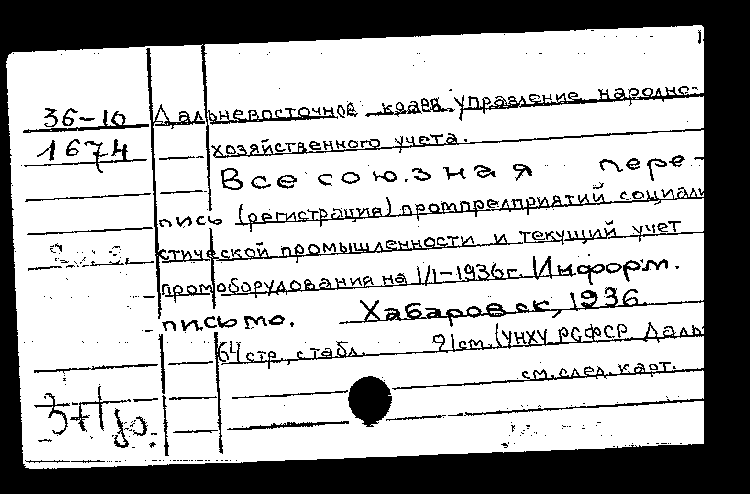 36-10 Дальневосточное краев. управление народно-
1674 хозяйственного учета.
Всесоюзная пере-
пись (регистрация) промпредприятий социали
стической промышленности и текущий учет
промоборудования на 1/I-1936г. Информ.
письмо. Хабаровск, 1936.
64 стр., с табл. 21 см. (УНХУ РСФСР. Даль
см. след. карт.